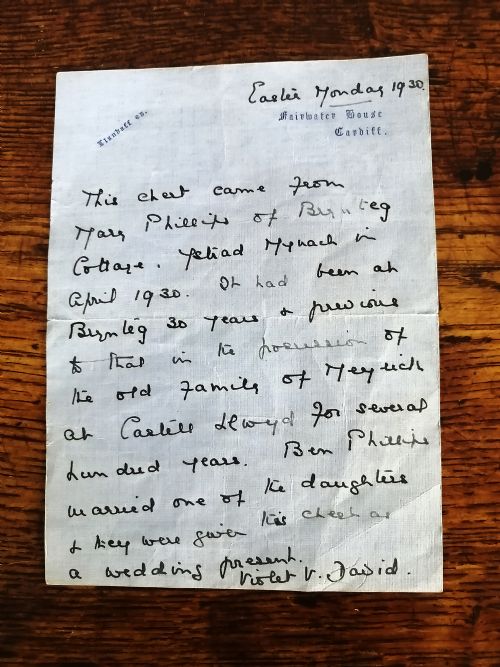 Easter Monday 1930.
Llandaff 60.
Fairwater House
Cardiff.
This chest came from
Mary Phillips of Brynteg
Cottage. Ystrad Mynach in
April 1930. It had been at
Brynteg 30 years & previous
to that in the possession of
the old family of Meyrick
at Castell Llwyd for several
hundred years. Ben Phillips
married one of the daughters
& they were given this chest as
a wedding present.
Violet V. David.